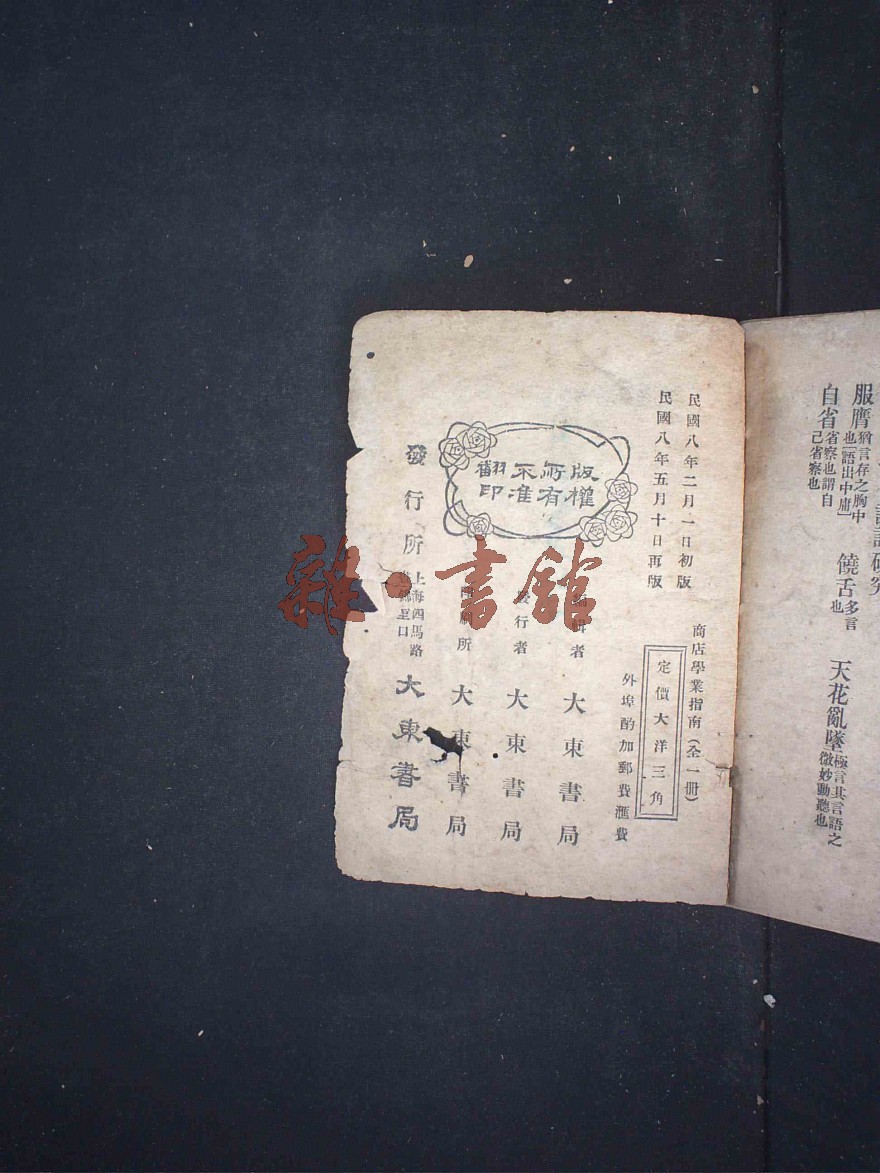 服膺 猶言存之胸中也語出中庸」 饒舌 多言也 天花亂墜 極言其言語之微妙動聽也
自省 省察也謂自己省察也
民國八年二月一日初版
民國八年五月十日再版
商店學業指南(全一册)
定價大洋三角
外埠酌加郵費滙費
版權所有
不准翻印
編輯者 大東書局
發行者 大東書局
印刷所 大東書局
發行所 上海四馬路 里口 大東書局
雜·書館